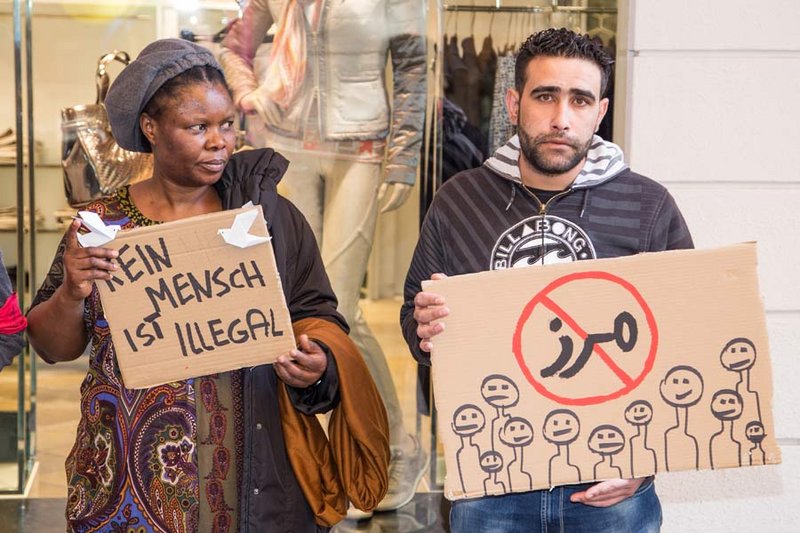 KEIN
MENSCH
IST ILLEGAL
BILLABONG